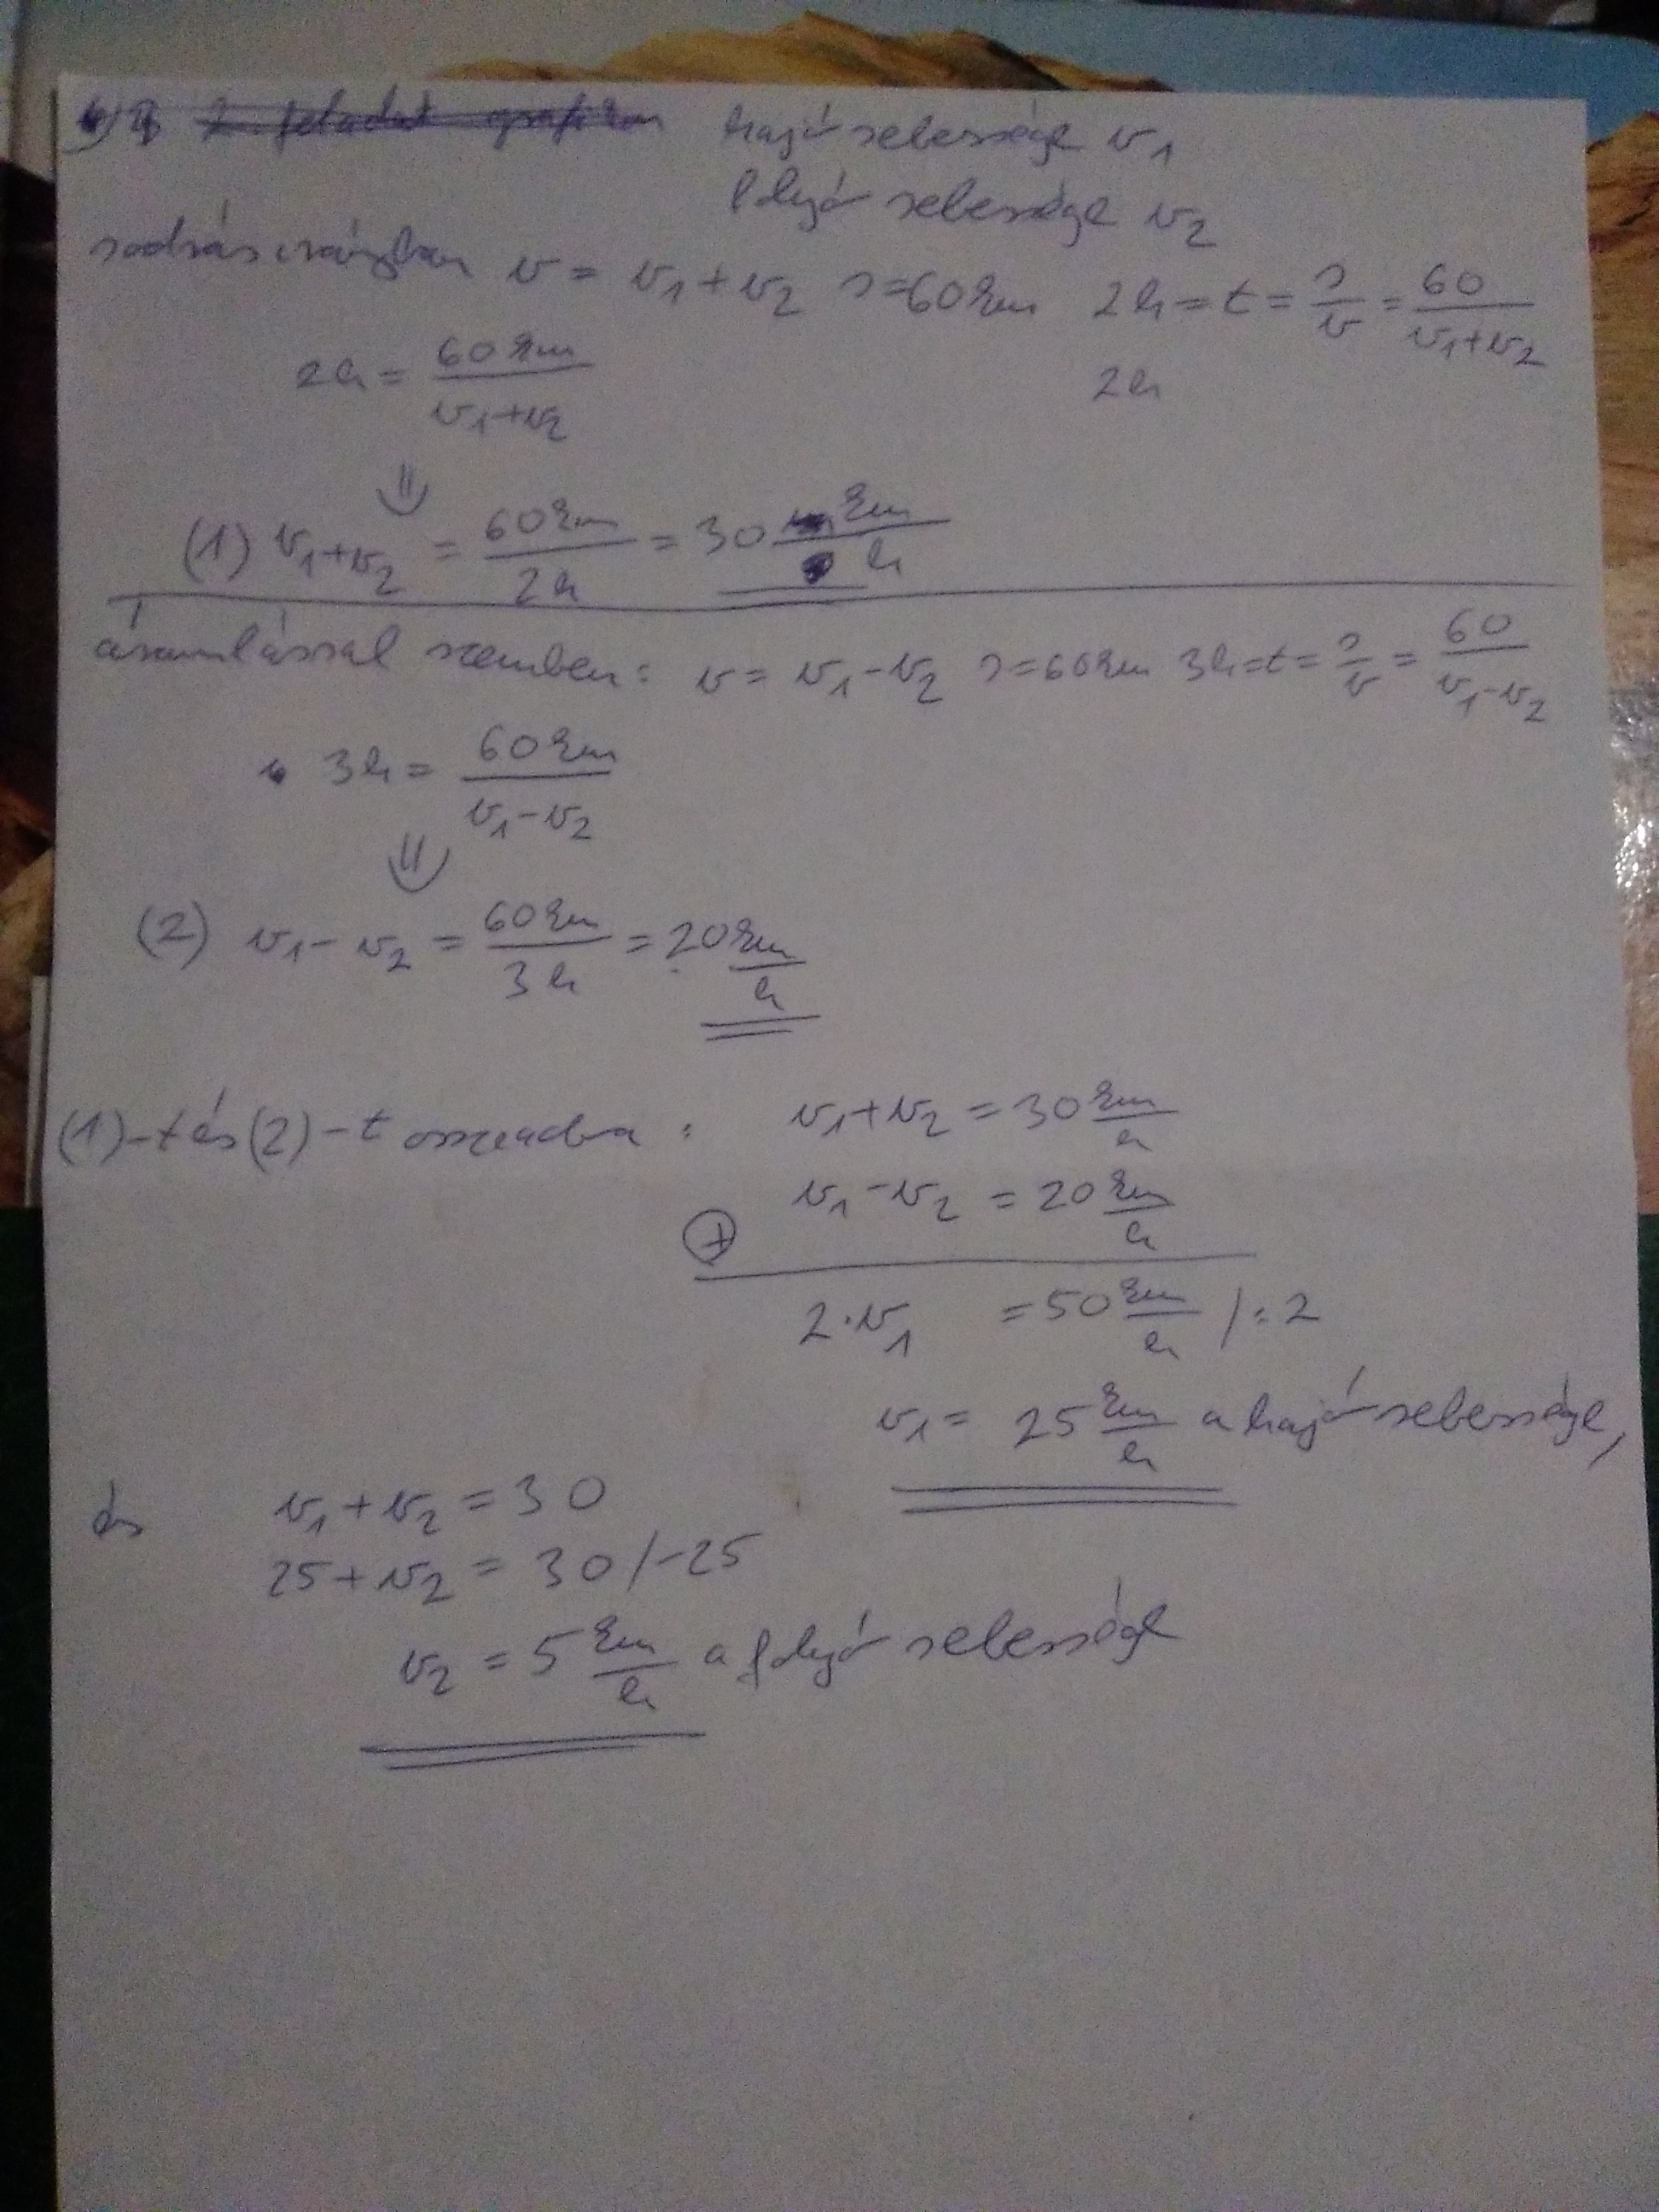 2. feladat grafikon hajó sebessége v₁
folyó sebessége v₂
sodrásirányban v = v₁+v₂ s=60km 2h=t=s/v=60/(v₁+v₂)
2h = 60km/(v₁+v₂) 2h
⇓
(1) v₁+v₂ = 60km/2h = 30 km/h
áramlással szemben: v = v₁-v₂ s=60km 3h=t=s/v=60/(v₁-v₂)
3h = 60km/(v₁-v₂)
⇓
(2) v₁-v₂ = 60km/3h = 20 km/h
(1)-t és (2)-t összeadva: v₁+v₂ = 30 km/h
v₁-v₂ = 20 km/h
+
2·v₁ = 50 km/h /:2
v₁ = 25 km/h a hajó sebessége,
és v₁+v₂ = 30
25+v₂ = 30 /-25
v₂ = 5 km/h a folyó sebessége